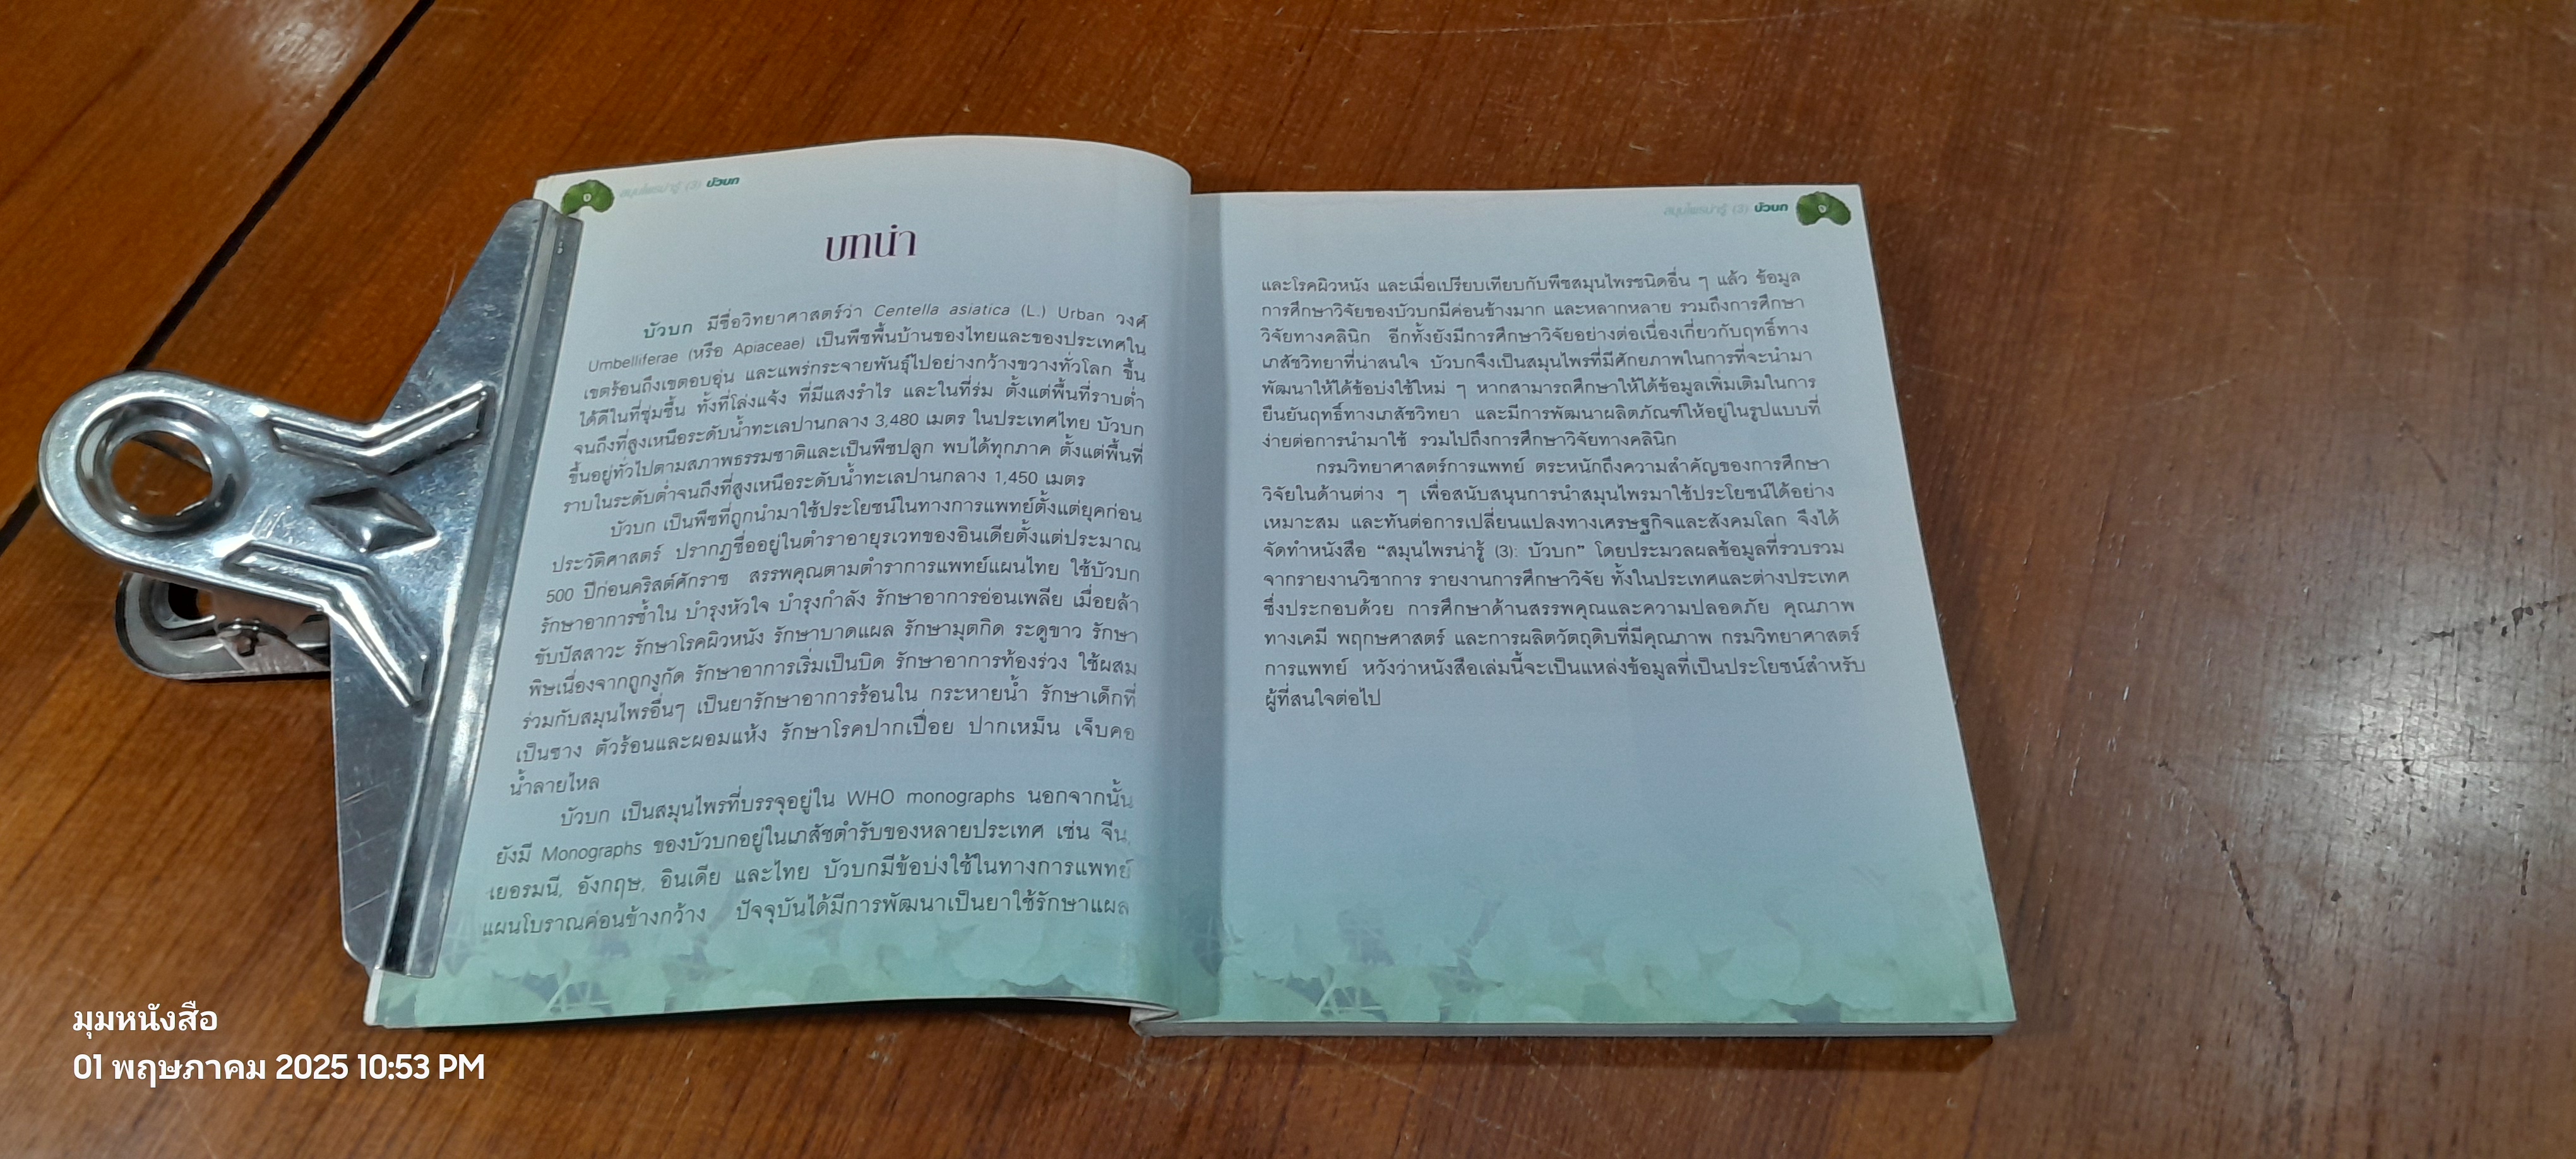 สมุนไพรน่ารู้ (3) บัวบก
บทนำ
บัวบก มีชื่อวิทยาศาสตร์ว่า Centella asiatica (L.) Urban วงศ์
Umbelliferae (หรือ Apiaceae) เป็นพืชพื้นบ้านของไทยและของประเทศใน
เขตร้อนถึงเขตอบอุ่น และแพร่กระจายพันธุ์ไปอย่างกว้างขวางทั่วโลก ขึ้น
ได้ดีในที่ชุ่มชื้น ทั้งที่โล่งแจ้ง ที่มีแสงรำไร และในที่ร่ม ตั้งแต่พื้นที่ราบต่ำ
จนถึงที่สูงเหนือระดับน้ำทะเลปานกลาง 3,480 เมตร ในประเทศไทย บัวบก
ขึ้นอยู่ทั่วไปตามสภาพธรรมชาติและเป็นพืชปลูก พบได้ทุกภาค ตั้งแต่พื้นที่
ราบในระดับต่ำจนถึงที่สูงเหนือระดับน้ำทะเลปานกลาง 1,450 เมตร
บัวบก เป็นพืชที่ถูกนำมาใช้ประโยชน์ในทางการแพทย์ตั้งแต่ยุคก่อน
ประวัติศาสตร์ ปรากฏชื่ออยู่ในตำราอายุรเวทของอินเดียตั้งแต่ประมาณ
500 ปีก่อนคริสต์ศักราช สรรพคุณตามตำราการแพทย์แผนไทย ใช้บัวบก
รักษาอาการช้ำใน บำรุงหัวใจ บำรุงกำลัง รักษาอาการอ่อนเพลีย เมื่อยล้า
ขับปัสสาวะ รักษาโรคผิวหนัง รักษาบาดแผล รักษามุตกิด ระดูขาว รักษา
พิษเนื่องจากถูกงูกัด รักษาอาการเริ่มเป็นบิด รักษาอาการท้องร่วง ใช้ผสม
ร่วมกับสมุนไพรอื่นๆ เป็นยารักษาอาการร้อนใน กระหายน้ำ รักษาเด็กที่
เป็นซาง ตัวร้อนและผอมแห้ง รักษาโรคปากเปื่อย ปากเหม็น เจ็บคอ
น้ำลายไหล
บัวบก เป็นสมุนไพรที่บรรจุอยู่ใน WHO monographs นอกจากนั้น
ยังมี Monographs ของบัวบกอยู่ในเภสัชตำรับของหลายประเทศ เช่น จีน,
เยอรมนี, อังกฤษ, อินเดีย และไทย บัวบกมีข้อบ่งใช้ในทางการแพทย์
แผนโบราณค่อนข้างกว้าง ปัจจุบันได้มีการพัฒนาเป็นยาใช้รักษาแผล
สมุนไพรน่ารู้ (3) บัวบก
และโรคผิวหนัง และเมื่อเปรียบเทียบกับพืชสมุนไพรชนิดอื่น ๆ แล้ว ข้อมูล
การศึกษาวิจัยของบัวบกมีค่อนข้างมาก และหลากหลาย รวมถึงการศึกษา
วิจัยทางคลินิก อีกทั้งยังมีการศึกษาวิจัยอย่างต่อเนื่องเกี่ยวกับฤทธิ์ทาง
เภสัชวิทยาที่น่าสนใจ บัวบกจึงเป็นสมุนไพรที่มีศักยภาพในการที่จะนำมา
พัฒนาให้ได้ข้อบ่งใช้ใหม่ ๆ หากสามารถศึกษาให้ได้ข้อมูลเพิ่มเติมในการ
ยืนยันฤทธิ์ทางเภสัชวิทยา และมีการพัฒนาผลิตภัณฑ์ให้อยู่ในรูปแบบที่
ง่ายต่อการนำมาใช้ รวมไปถึงการศึกษาวิจัยทางคลินิก
กรมวิทยาศาสตร์การแพทย์ ตระหนักถึงความสำคัญของการศึกษา
วิจัยในด้านต่าง ๆ เพื่อสนับสนุนการนำสมุนไพรมาใช้ประโยชน์ได้อย่าง
เหมาะสม และทันต่อการเปลี่ยนแปลงทางเศรษฐกิจและสังคมโลก จึงได้
จัดทำหนังสือ “สมุนไพรน่ารู้ (3): บัวบก” โดยประมวลผลข้อมูลที่รวบรวม
จากรายงานวิชาการ รายงานการศึกษาวิจัย ทั้งในประเทศและต่างประเทศ
ซึ่งประกอบด้วย การศึกษาด้านสรรพคุณและความปลอดภัย คุณภาพ
ทางเคมี พฤกษศาสตร์ และการผลิตวัตถุดิบที่มีคุณภาพ กรมวิทยาศาสตร์
การแพทย์ หวังว่าหนังสือเล่มนี้จะเป็นแหล่งข้อมูลที่เป็นประโยชน์สำหรับ
ผู้ที่สนใจต่อไป
มุมหนังสือ
01 พฤษภาคม 2025 10:53 PM